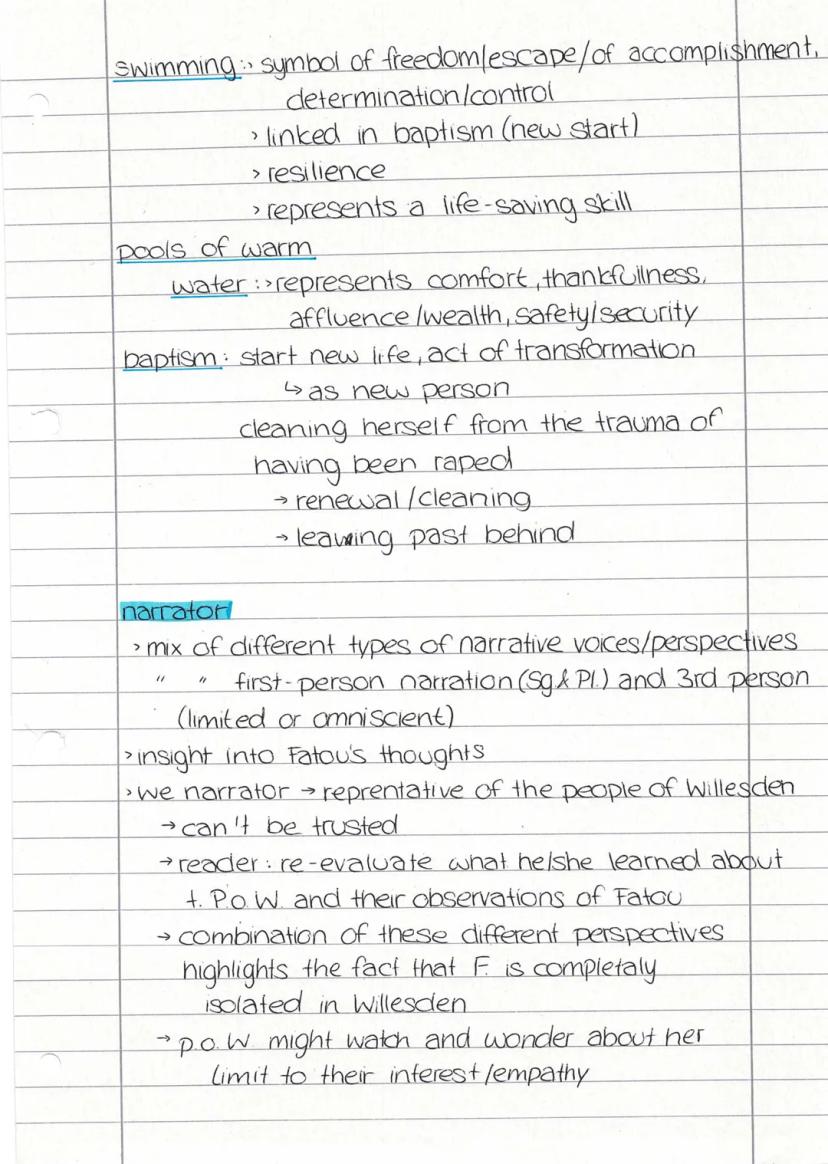 swimming:> symbol of freedom/escape/of accomplishment,
determination/control
> linked in baptism (new start)
> resilience
> represents a life-saving skill
pools of warm
water:> represents comfort, thankfullness,
affluence/wealth, safety/security
baptism: start new life, act of transformation
↳ as new person
cleaning herself from the trauma of
having been raped
→ renewal/cleaning
→ leaving past behind
narrator
> mix of different types of narrative voices/perspectives
" " first-person narration (Sg & Pl.) and 3rd person
(limited or omniscient)
> insight into Fatou's thoughts
> we narrator → reprentative of the people of Willesden
→ can't be trusted
→ reader: re-evaluate what he/she learned about
t. P.o.W. and their observations of Fatou
→ combination of these different perspectives
highlights the fact that F. is completaly
isolated in Willesden
→ p.o.W. might watch and wonder about her
limit to their interest/empathy